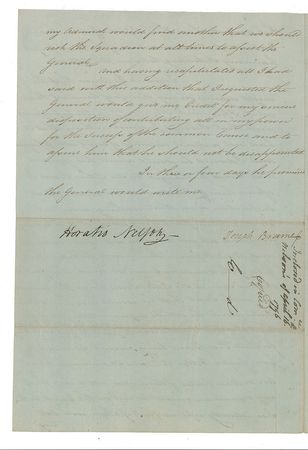 my Admiral would find another that we should
risk the Squadron at all times to assist the
General
and having recapitulated all I had
said with this addition that I requested the
General would give me Credit for my sincere
disposition of contributing all in my power
for the Success of the common Cause and to
assure him that he should not be disappointed
In three or four days he promised
the General would write me
Horatio Nelson
Joseph
Inclosed in Com.
Nelson's of April 16
1796
Copied